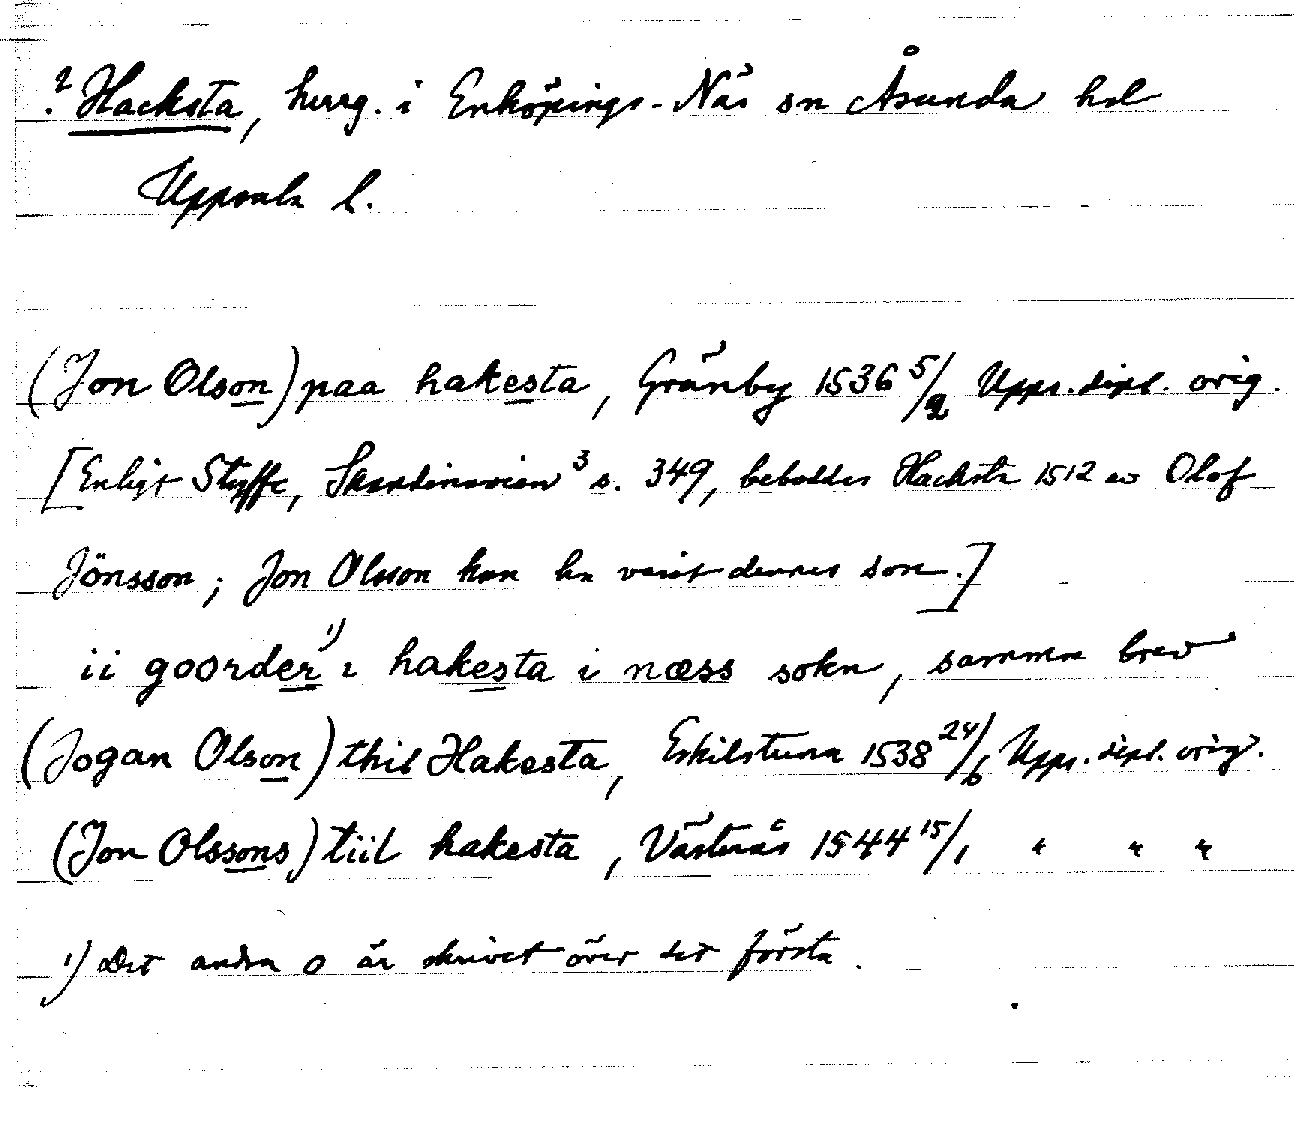 ? Hacksta, herrg. i Enköpings-Näs sn Åsunda hd
Uppsala l.
(Jon Olson) paa hakesta, Gränby 1536 5/2 Upps. dipl. orig.
[Enligt Styffe, Skandinavien³ s. 349, beboddes Hacksta 1512 av Olof
Jönsson; Jon Olsson kan ha varit dennes son.]
ii goorder¹⁾ i hakesta i næss sokn, samma brev
(Jogan Olson) thil Hakesta, Eskilstuna 1538 24/6 Upps. dipl. orig.
(Jon Olssons) tiil hakesta, Västerås 1544 15/1 " " "
¹⁾ Det andra o är skrivet över det första.